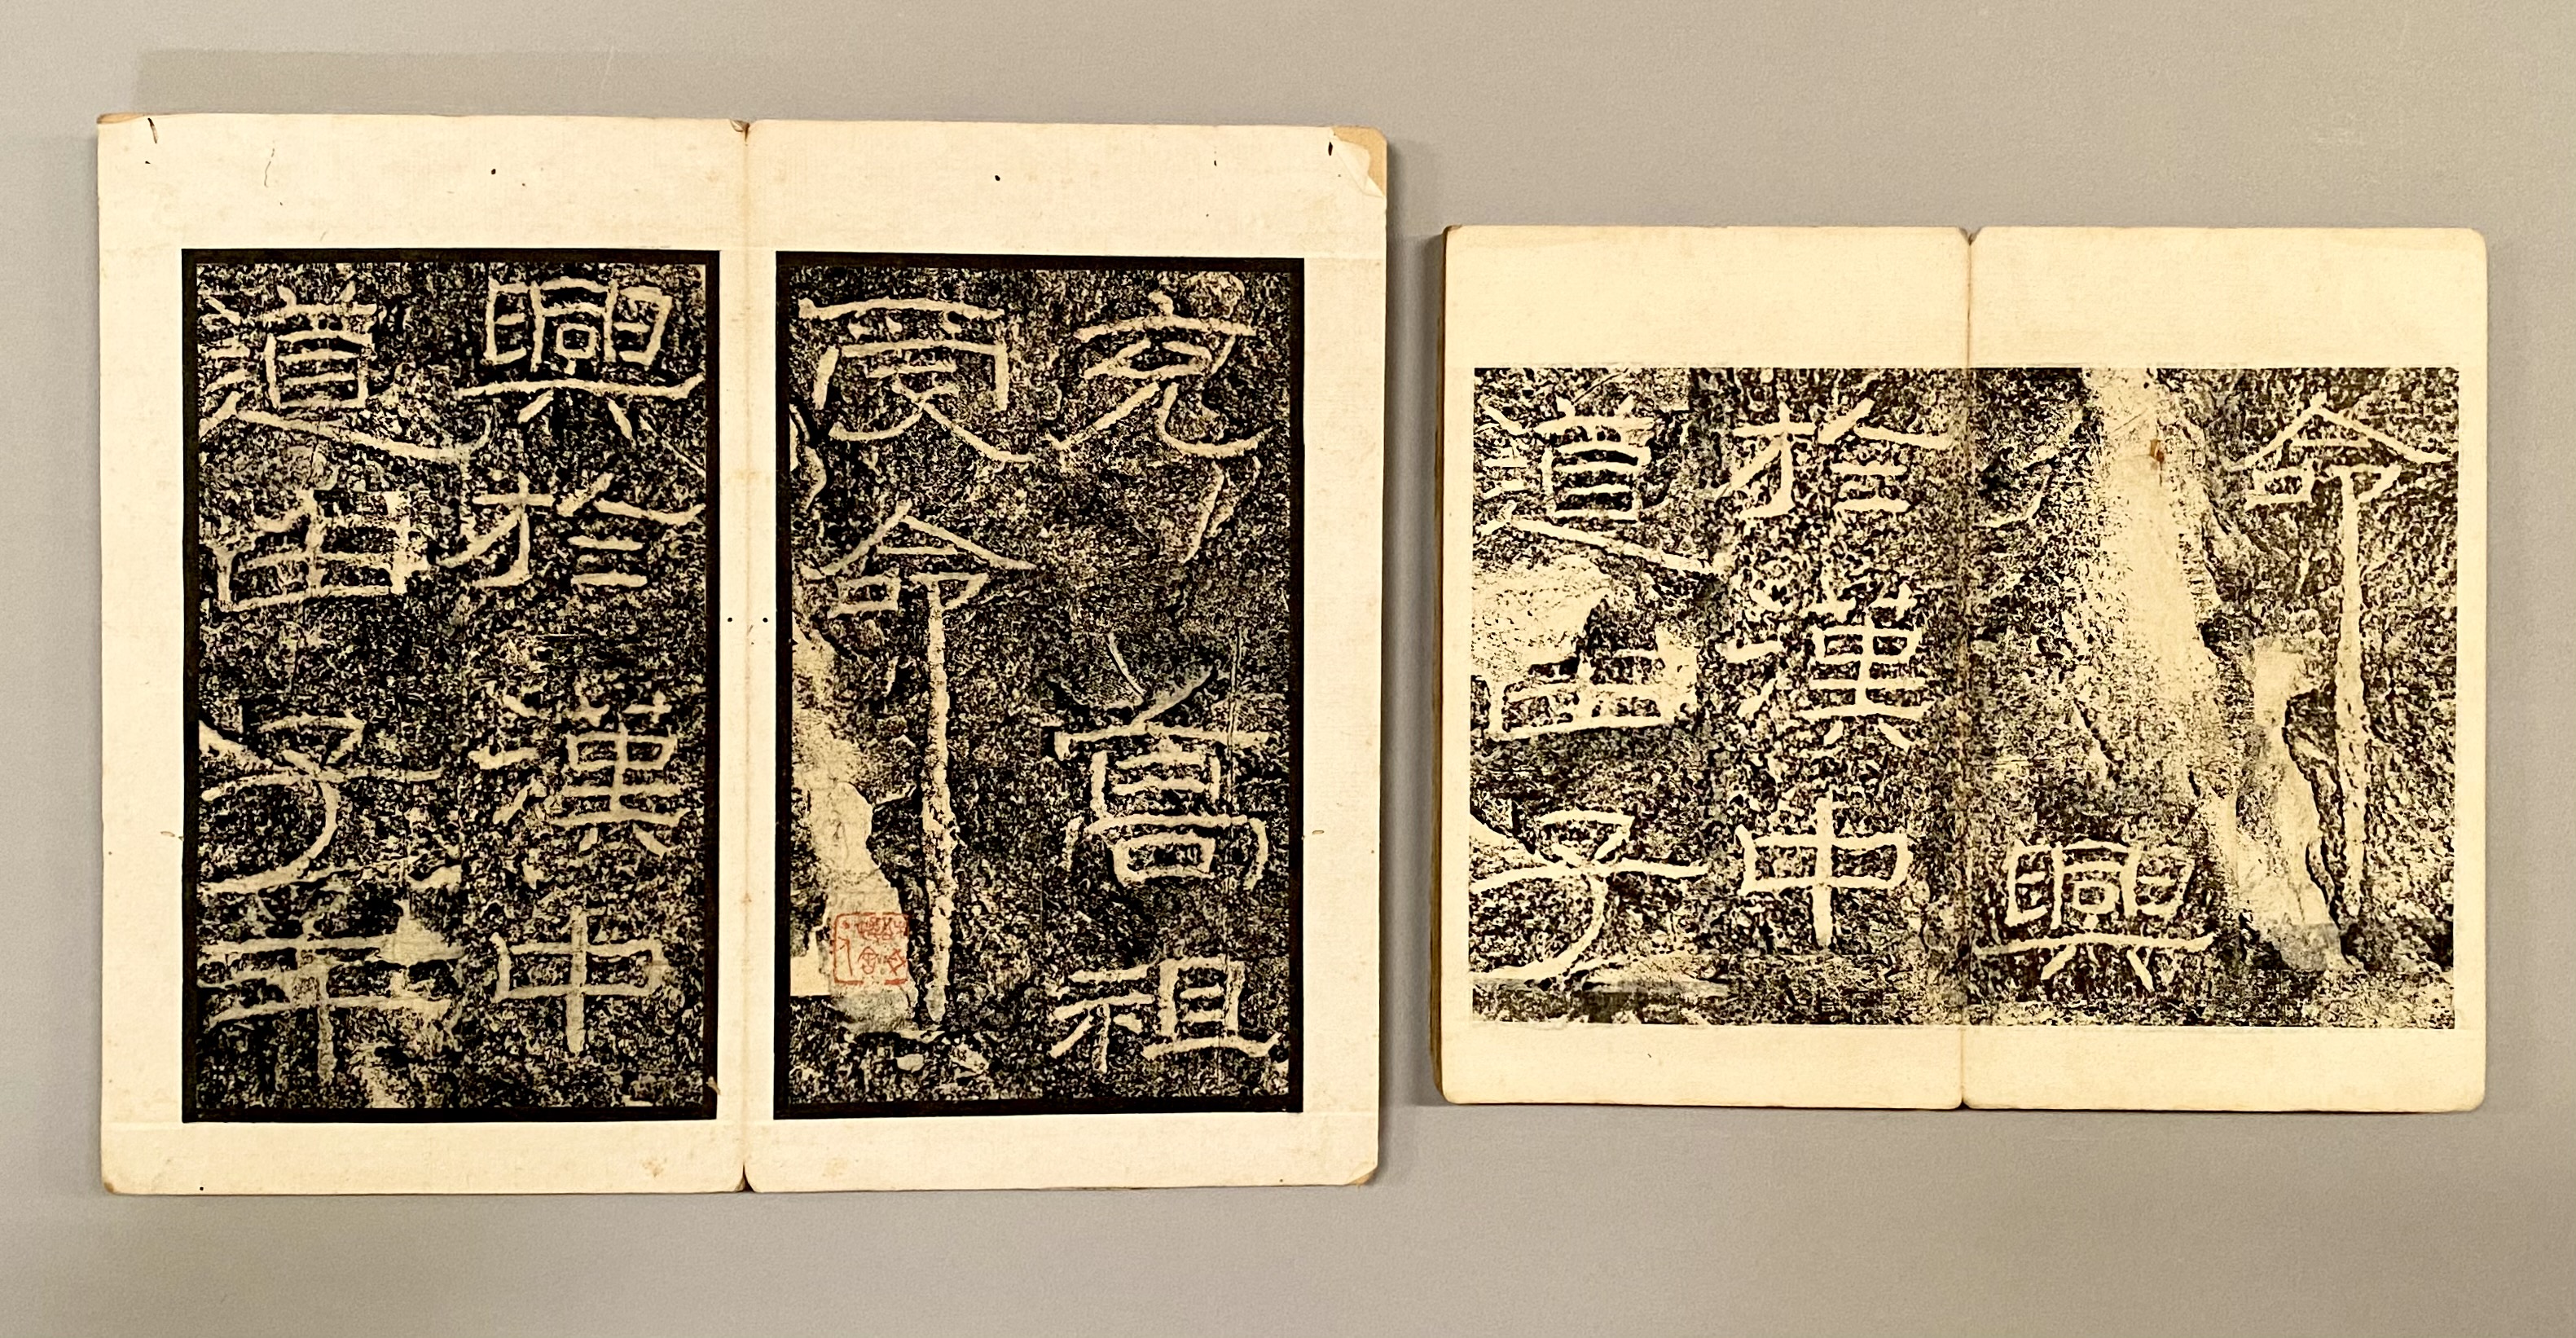 充高祖
受命
興於漢中
道由子午
命
興
於漢中
道由子